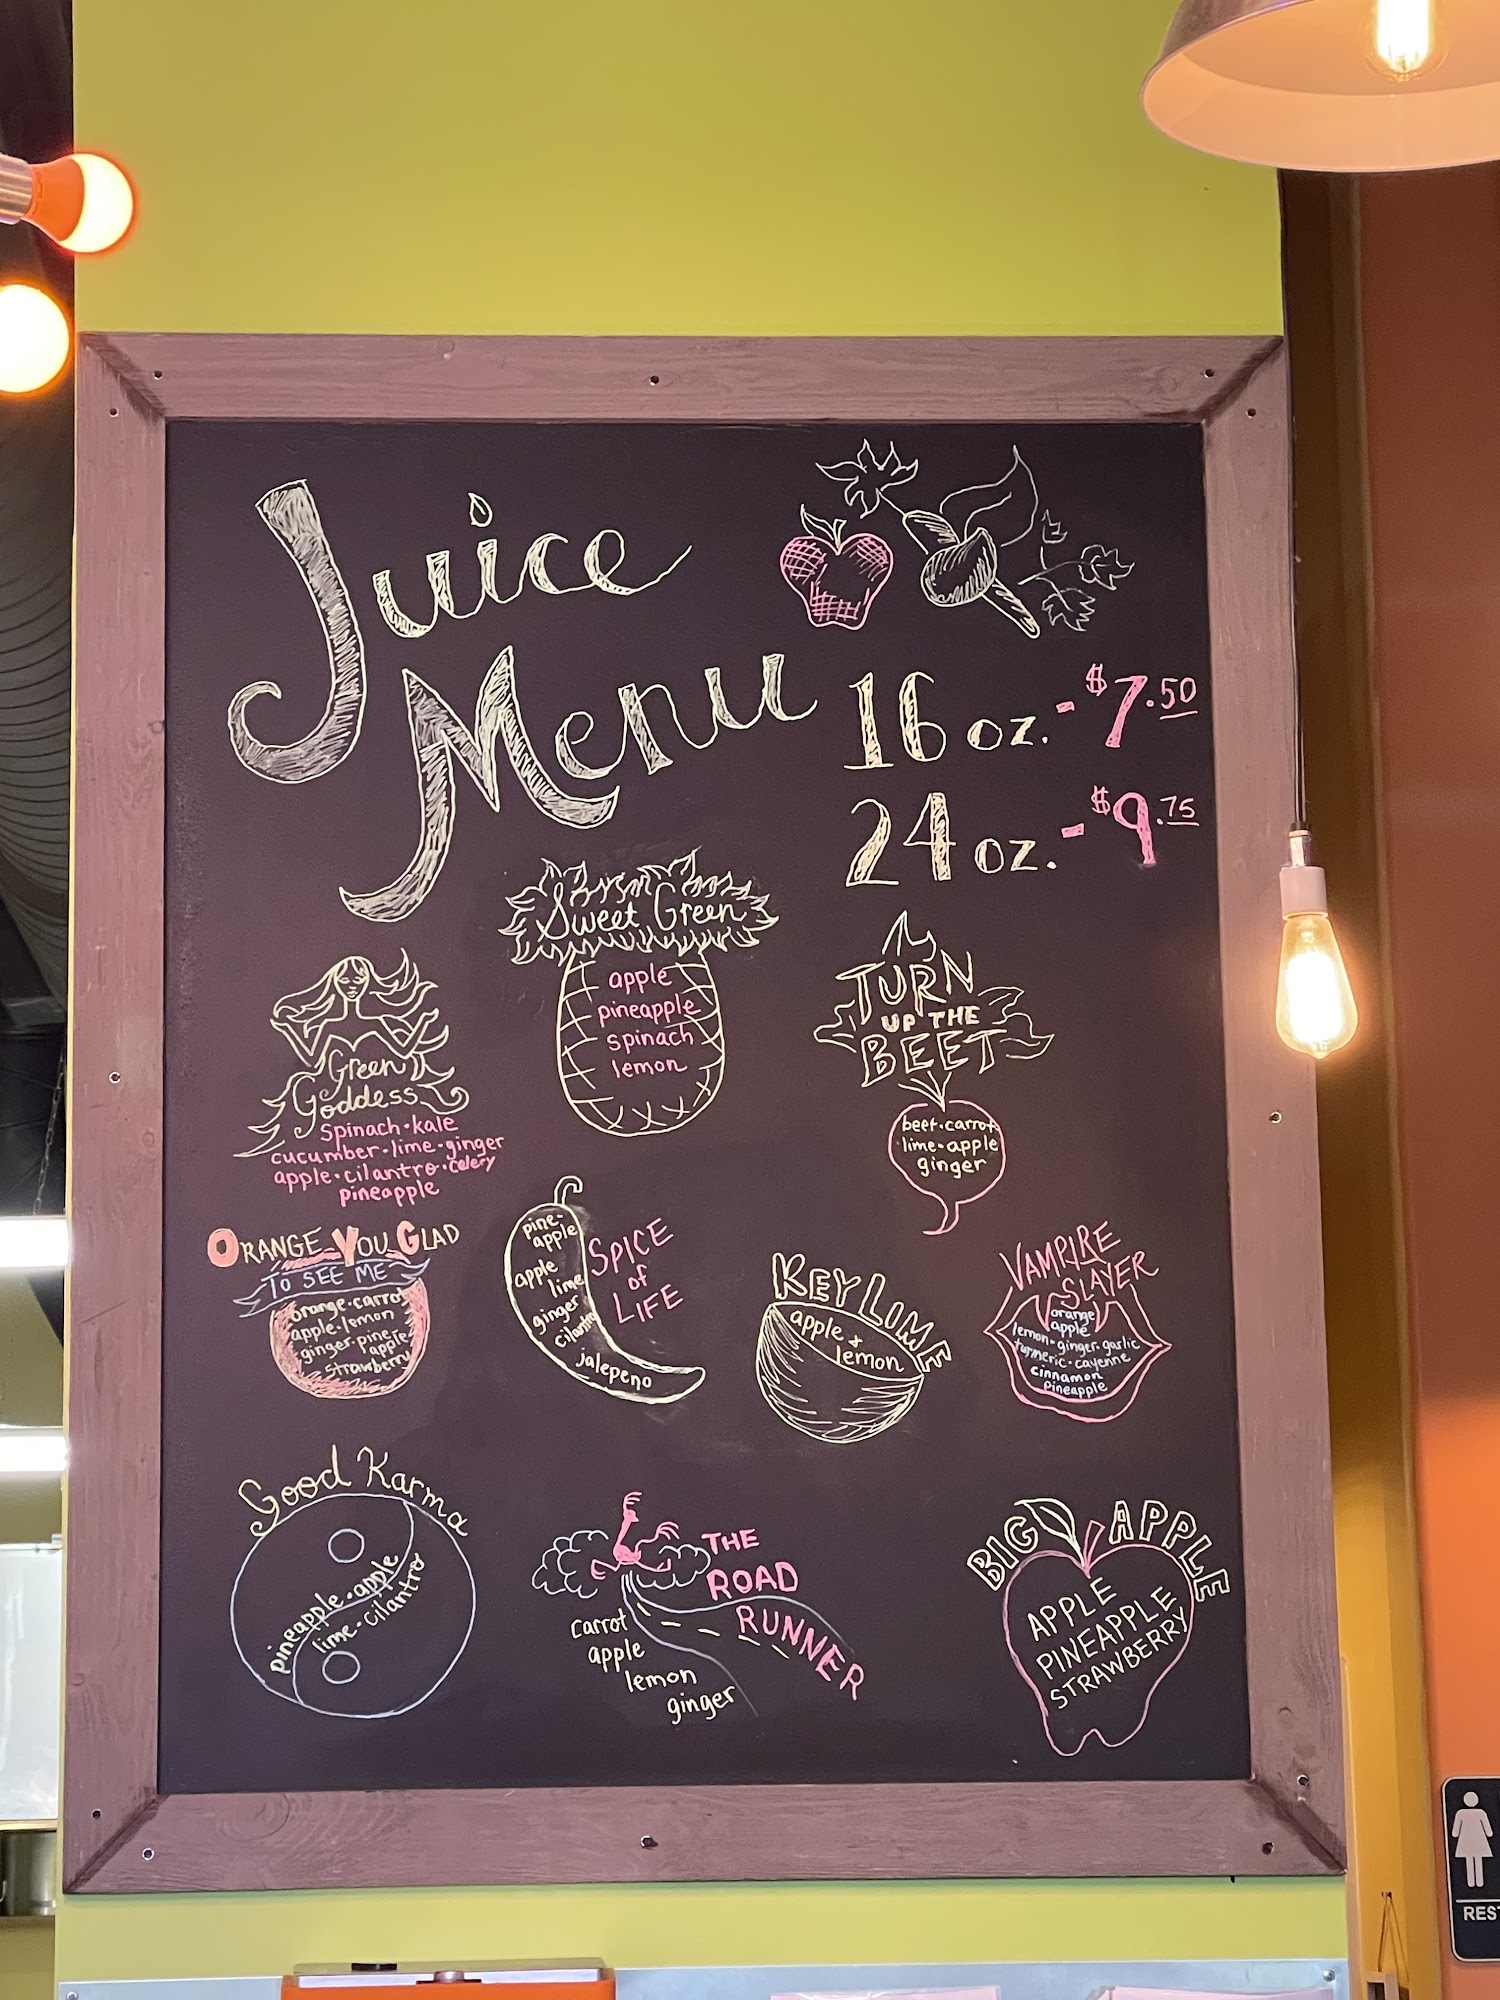 Juice
Menu
16 oz. - $7.50
24 oz. - $9.75
Sweet Green
apple
pineapple
spinach
lemon
Green
Goddess
Spinach · kale
cucumber · lime · ginger
apple · cilantro · celery
pineapple
TURN
UP THE
BEET
beet · carrot
lime · apple
ginger
ORANGE YOU GLAD
TO SEE ME
orange · carrot
apple · lemon
ginger · pine
apple
strawberry
SPICE
of
LIFE
pine-
apple
apple
lime
ginger
cilantro
jalepeno
KEY LIME
apple &
lemon
VAMPIRE
SLAYER
orange
apple
lemon · ginger · garlic
turmeric · cayenne
cinnamon
pineapple
Good Karma
pineapple · apple
lime · cilantro
THE
ROAD
RUNNER
carrot
apple
lemon
ginger
BIG APPLE
APPLE
PINEAPPLE
STRAWBERRY
REST